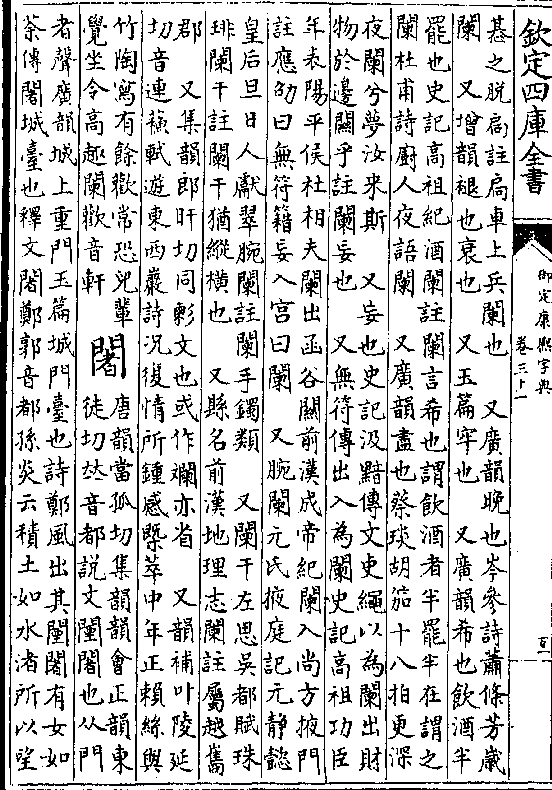 欽定四庫全書
御定康熙字典
卷三十一
惎之脫扃註扃車上兵闌也 又廣韻晚也岑參詩蕭條芳歲
闌 又增韻褪也衰也 又玉篇牢也 又廣韻希也飲酒半
罷也史記高祖紀酒闌註闌言希也謂飲酒者半罷半在謂之
闌杜甫詩廚人夜語闌 又廣韻盡也蔡琰胡笳十八拍更深
夜闌兮夢汝來斯 又妄也史記汲黯傳文吏繩以為闌出財
物於邊關乎註闌妄也 又無符傳出入為闌史記高祖功臣
年表陽平侯杜相夫闌出函谷關前漢成帝紀闌入尚方掖門
註應劭曰無符籍妄入宮曰闌 又腕闌元氏掖庭記元靜懿
皇后旦日人獻翠腕闌註闌手鐲類 又闌干左思吳都賦珠
琲闌干註闌干猶縱橫也 又縣名前漢地理志闌註屬越嶲
郡 又集韻郎旰切同文也或作斕亦省 又韻補叶陵延
切音連蘇軾遊東西巖詩況復情所鍾感槩萃中年正賴絲與
竹陶寫有餘歡常恐兒輩
覺坐令高趣闌歡音軒
闍 唐韻當孤切集韻韻會正韻東
徒切𠀤音都說文闉闍也从門
者聲廣韻城上重門玉篇城門臺也詩鄭風出其闉闍有女如
荼傳闍城臺也釋文闍鄭郭音都孫炎云積土如水渚所以望